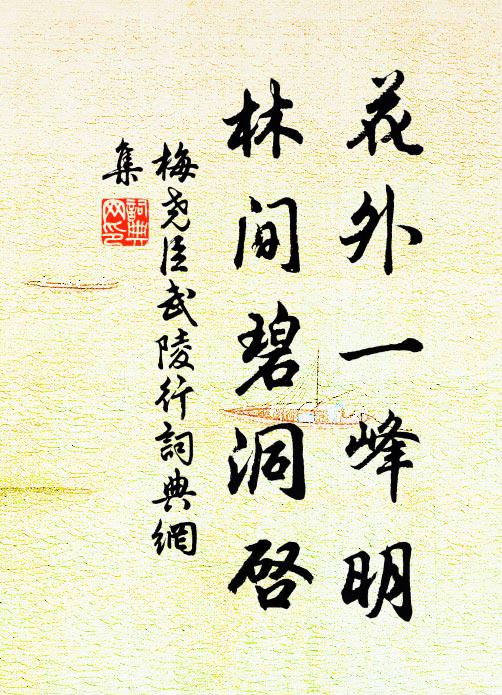 花外一峰明
林间碧洞启
梅尧臣武陵行詞典網
集
詞典
网印